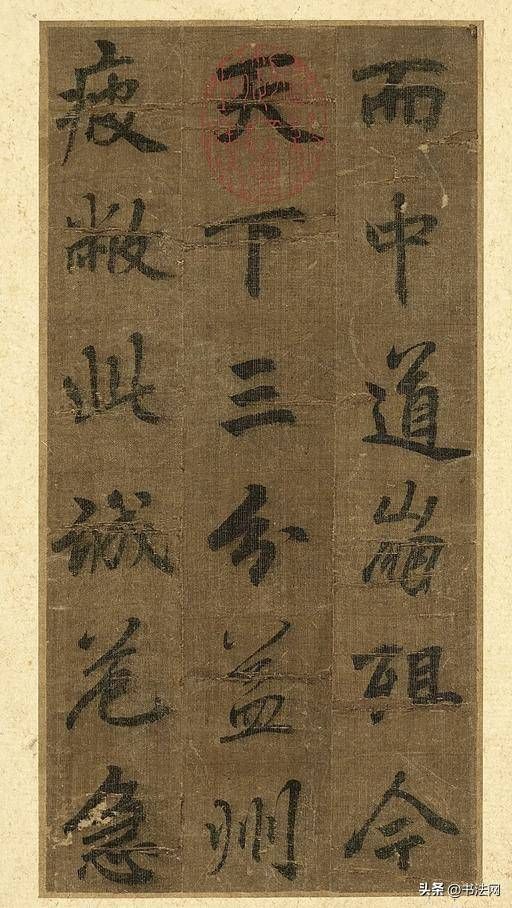 而中道崩殂今
天下三分益州
疲敝此誠危急
头条@书法网